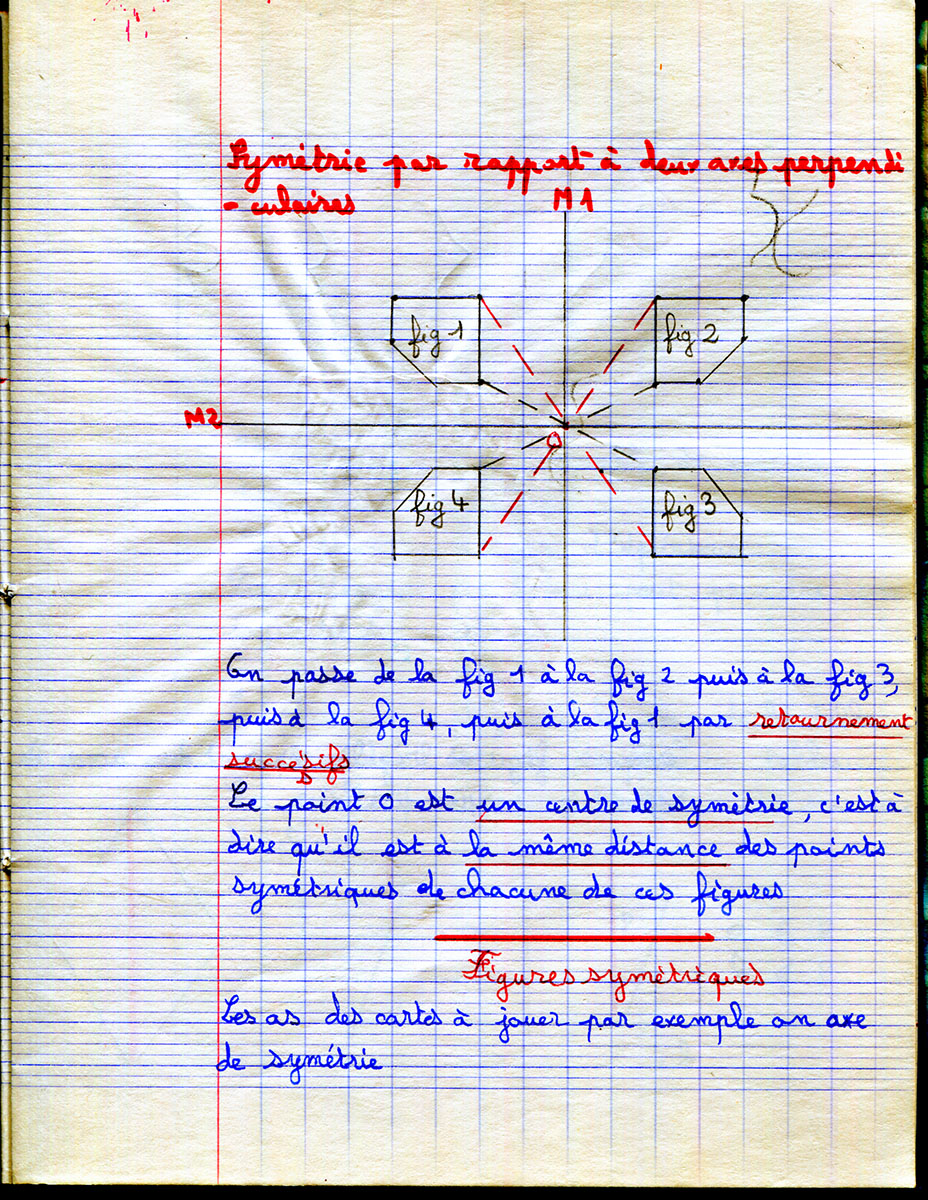 Symétrie par rapport à deux axes perpendi
- culaires
M1
fig 1
fig 2
M2
O
fig 4
fig 3
On passe de la fig 1 à la fig 2 puis à la fig 3,
puis à la fig 4, puis à la fig 1 par retournement
succesifs
s
Le point O est un centre de symétrie, c'est à
dire qu'il est à la même distance des points
symétriques de chacune de ces figures
Figures symétriques
Les as des cartes à jouer par exemple on axe
de symétrie